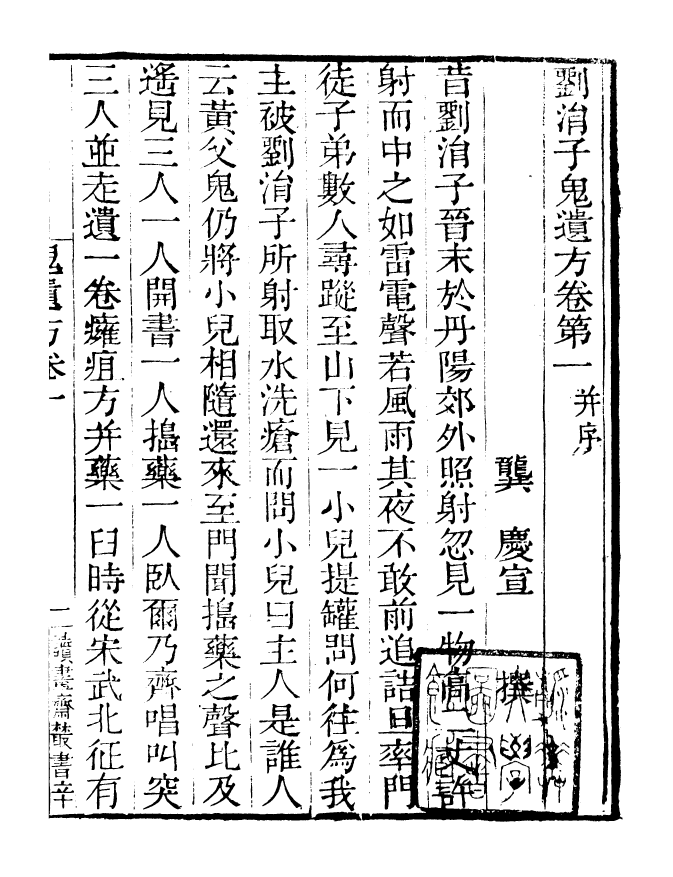 劉涓子鬼遺方卷第一 并序
龔慶宣 撰
昔劉涓子晉末於丹陽郊外照射忽見一物高二丈許
射而中之如雷電聲若風雨其夜不敢前追詰旦率門
徒子弟數人尋蹤至山下見一小兒提罐問何往爲我
主被劉涓子所射取水洗瘡而問小兒曰主人是誰人
云黃父鬼仍將小兒相隨還來至門聞搗藥之聲比及
遙見三人一人開書一人搗藥一人臥爾乃齊唱叫突
三人並走遺一卷癰疽方并藥一臼時從宋武北征有
鬼遺方卷一
一 讀畫齋叢書辛